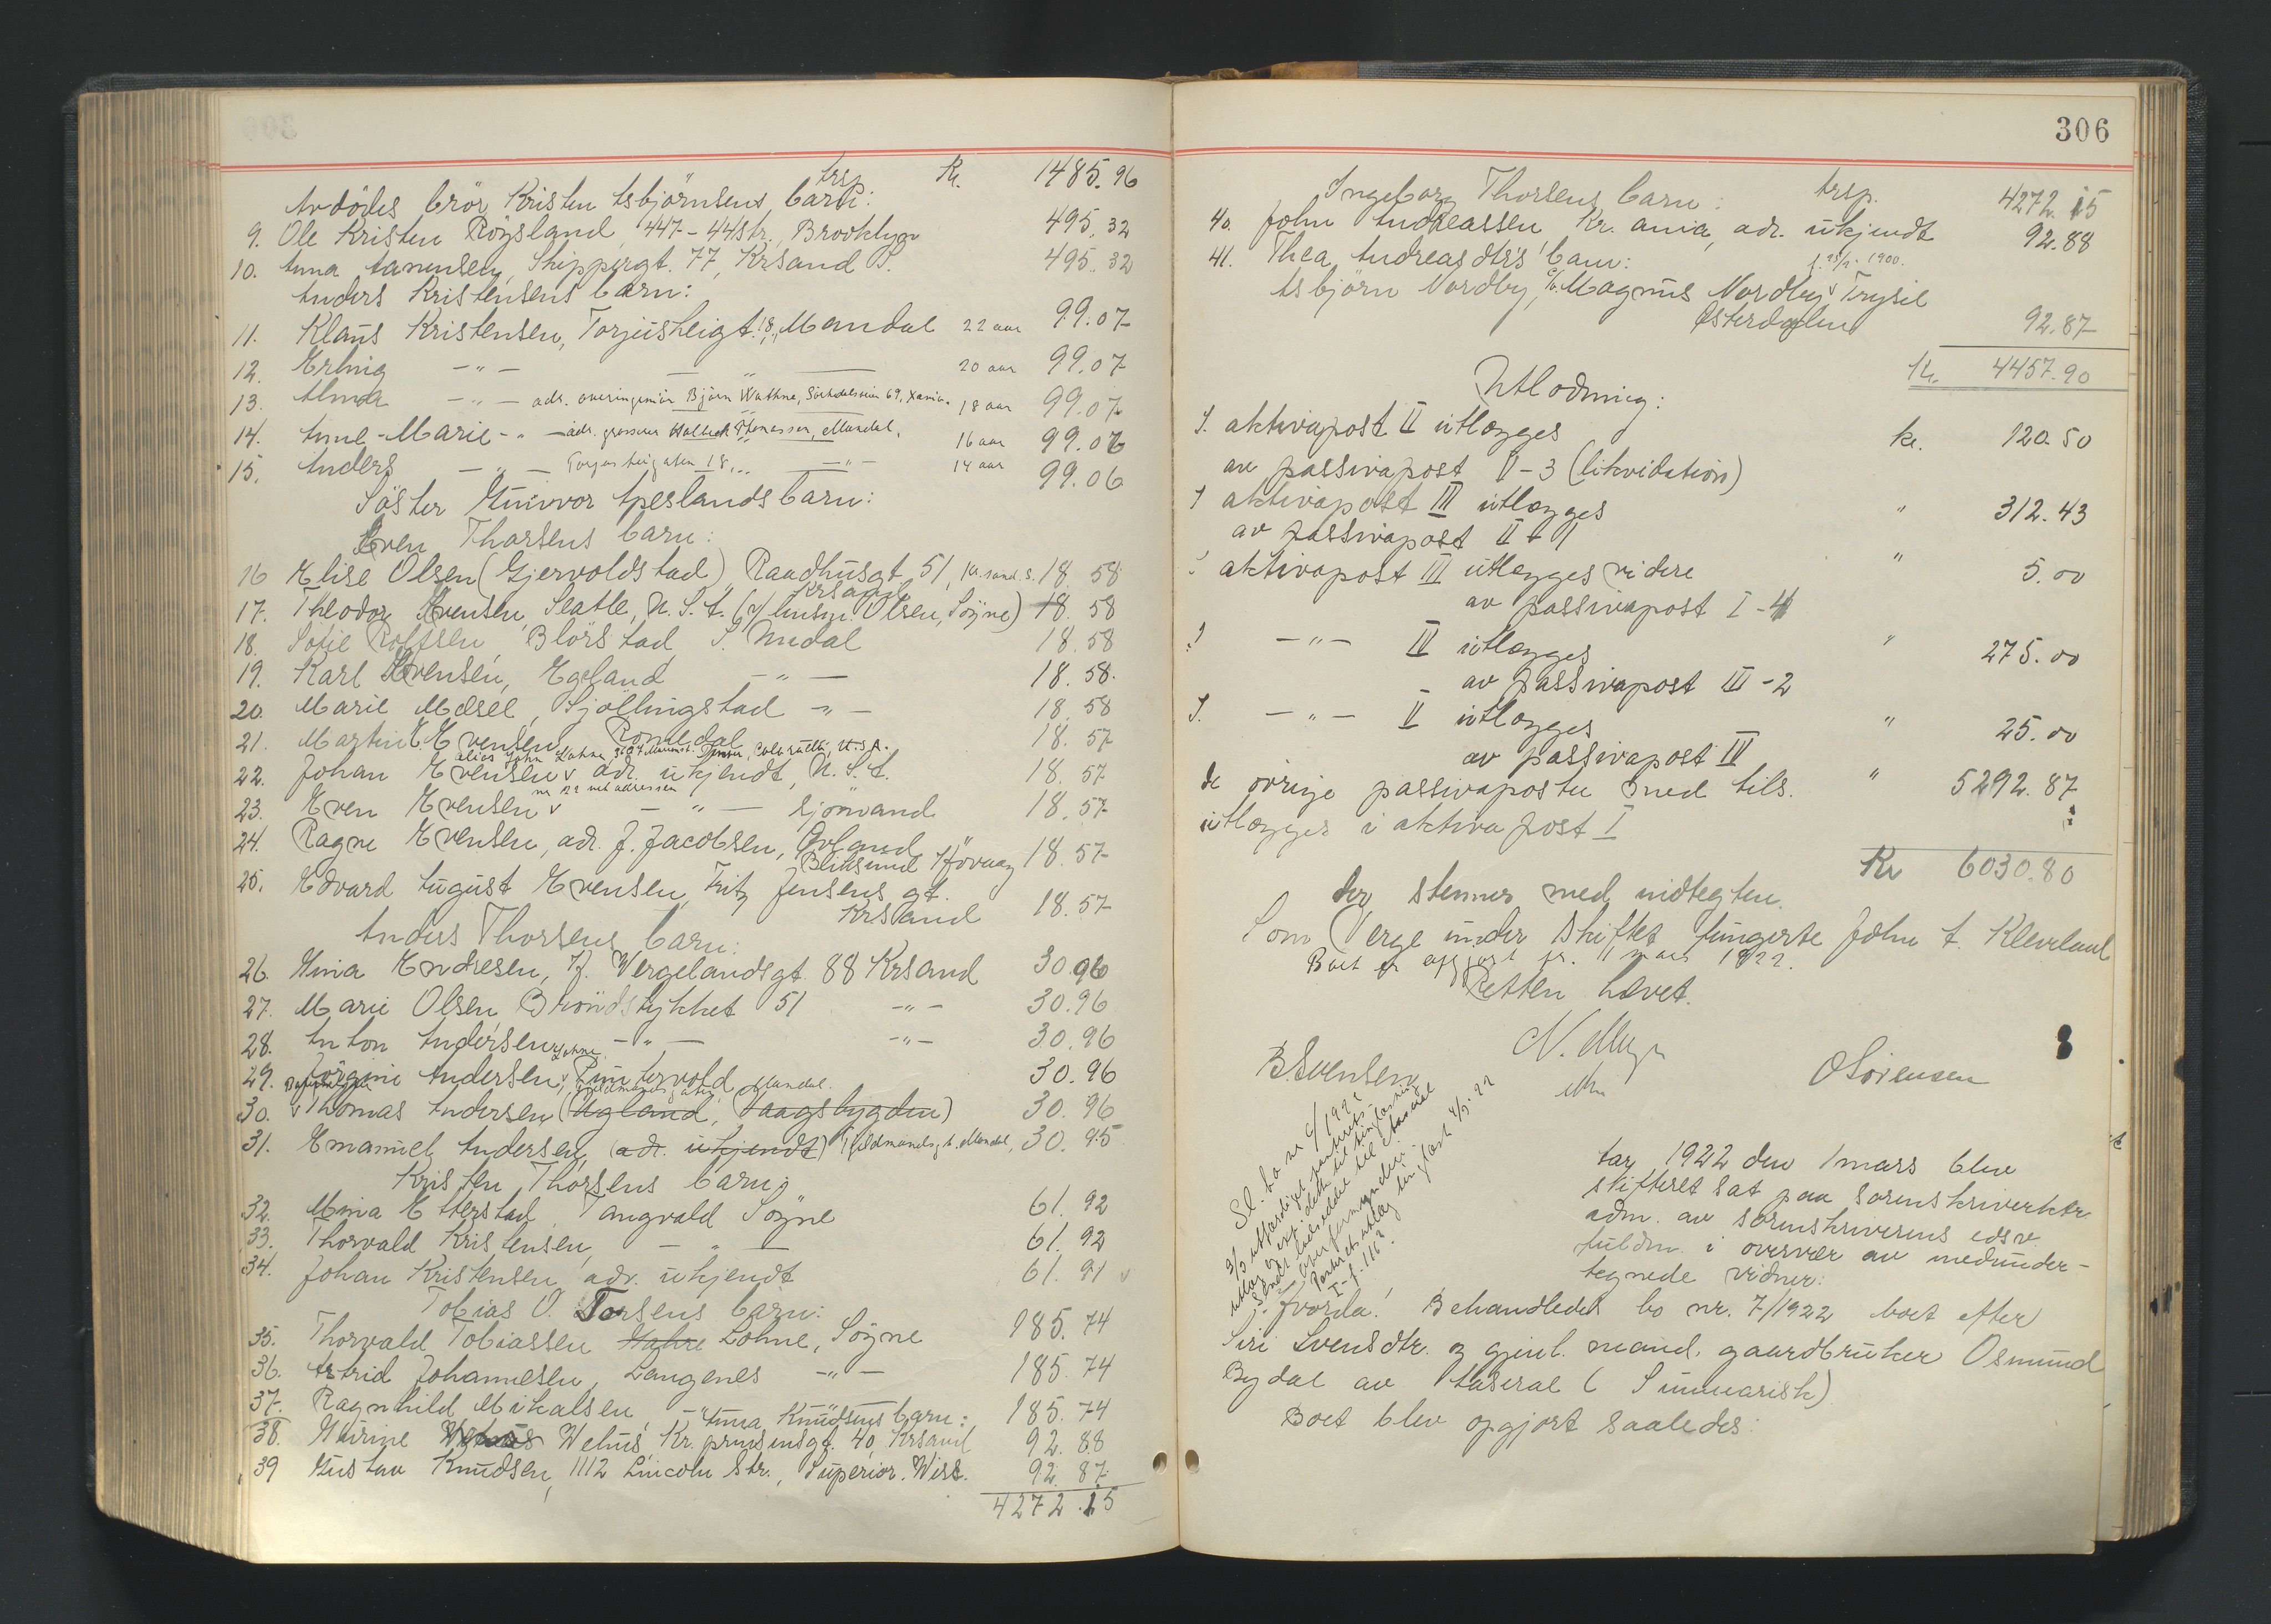 trsp. Kr. 1485.96
Avdødes brör Kristen Asbjörnsens barn:
9. Ole Kristen Röysland, 447-44 str., Brooklyn 495.32
10. Anna Aanensen, Skippergt. 77, Krsand S. 495.32
Anders Kristensens barn:
11. Klaus Kristensen, Torjusheigt. 18, Mandal 22 aar 99.07
12. Erling -"- 20 aar 99.07
13. Alma -"- adr. overingeniör Björn Wathne, 69, Xania. 18 aar 99.07
14. Anne-Marie -"- adr. grosserer Thomassen, Mandal. 16 aar 99.06
15. Anders -"- Torjusheigaten 18, -"- 14 aar 99.06
Söster Gunvor Apeslands barn:
Even Thorsens barn:
16 Elise Olsen (Gjervoldstad) Raadhusgt 51, Kr.sand. S. 18.58
Krsand
17. Theodor Evensen, Seatle, U.S.A. (v/ Olsen, Söyne) 18.58
18. Sofie Rolfsen, Blörstad, S. Undal 18.58
19. Karl Evensen, Egeland -"- 18.58.
20. Marie Mæsel, Sjöllingstad -"- 18.58
21. Martin E. Evensen, Romedal 18.57
alias John Lohne, U.S.A.
22. Johan Evensen v adr. ukjendt, U.S.A. 18.57
nr 22 ved adressen
23. Even Evensen v -"- sjömand 18.57
24. Ragne Evensen, adr. J. Jacobsen, 18.57
Bliksund Hövaag
25. Edvard August Evensen, Fritz Jensens gt.
Krsand 18.57
Anders Thorsens barn:
26. Gina Endresen, H. Wergelandsgt. 88 Krsand 30.96
27. Marie Olsen, Bröndstykket 51 -"- 30.96
28. Anton Andersen -"- -"- 30.96
Lohne
29. Jörgine Andersen, 30.96
Mandal.
30. v Thomas Andersen (Ugland, Vaagsbygden) 30.96
31. Emanuel Andersen, (adr. ukjendt) Mandal, 30.95
Kristen Thorsens barn:
32. Mina Etterstad, Tangvald Söyne 61.92
33. Thorvald Kristensen, -"- 61.92
34. Johan Kristensen, adr. ukjendt 61.91 v
Tobias O. Torsens barn:
35. Thorvald Tobiassen Lohne, Söyne 185.74
36. Astrid Johannesen, Langenes -"- 185.74
37. Ragnhild Mikalsen, -"- 185.74
Anna Knudsens barn:
38. Gurine Wehus, Kr. prinsensgt. 40, Krsand 92.88
39 Gustav Knudsen, 1112 Lincoln Str., Superior. Wisc. 92.87
4272.15
306
Ingeborg Thorsens barn: trsp. 4272.15
40. John Andreassen Kr.ania, adr. ukjendt 92.88
41. Thea Andreasdtrs' barn:
Asbjörn Nordby, c/o. Magnus Nordby v Trysil
Østerdalen 92.87
Kr. 4457.90
Utlodning:
I. aktivapost II utlægges kr. 120.50
av passivapost V-3 (likvidation)
I aktivapost III utlægges " 312.43
av passivapost II +
I aktivapost III utlægges videre " 5.00
av passivapost I-4
I -"- IV utlægges " 275.00
av passivapost III-2
I. -"- V utlægges " 25.00
av passivapost IV
de övrige passivaposter med tils. " 5292.87
utlægges i aktivapost I
Kr 6030.80
der stemmer med indtegten.
Som Verge under skiftet fungerte John A. Kleveland
Boet er opgjort pr. 11 mars 1922.
Retten hævet.
B. Svensen O Sörensen
Sl. bo nr 6/1922
Aar 1922 den 1 mars blev
skifteret sat paa sorenskriverktr.
adm. av sorenskriverens edsv.
fuldm. i overvær av medunder-
tegnede vidner:
Hvorda! Behandledes bo nr. 7/1922 boet efter
Siri Svensdtr. og gjenl. mand, gaardbruker Osmund
Bydal av Aaseral (Summarisk)
Boet blev opgjort saaledes: